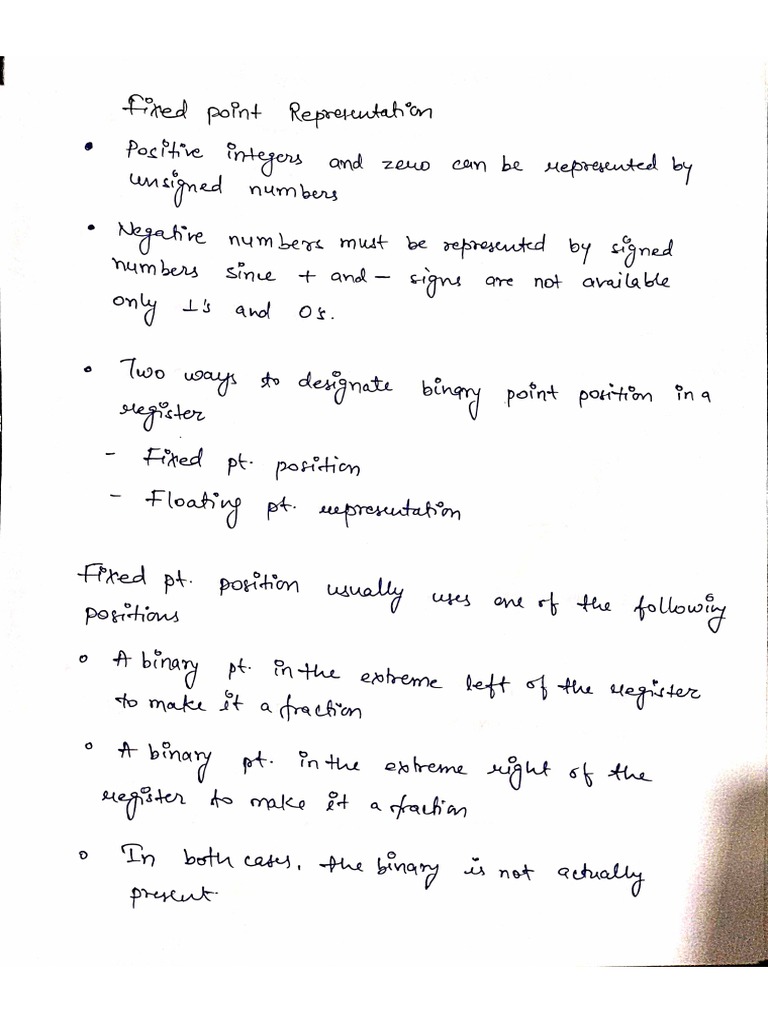 Fixed point Representation
• Positive integers and zero can be represented by
unsigned numbers
• Negative numbers must be represented by signed
numbers since + and - signs are not available
only 1's and 0's.
• Two ways to designate binary point position in a
register
- Fixed pt. position
- Floating pt. representation
Fixed pt. position usually uses one of the following
positions
○ A binary pt. in the extreme left of the register
to make it a fraction
○ A binary pt. in the extreme right of the
register to make it a fraction
○ In both cases, the binary is not actually
present.